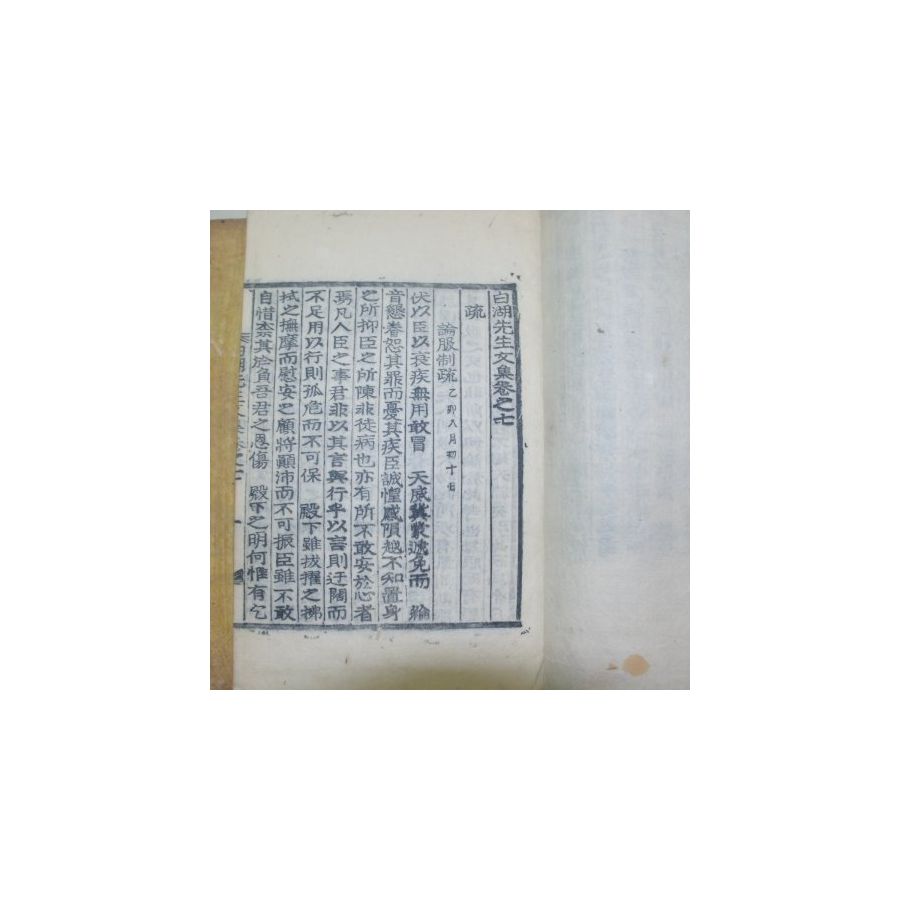 白湖先生文集卷之七
疏
論服制疏 乙卯八月初十日
伏以臣以衰疾無用敢冒 天威冀蒙逋免而 綸
音懇眷恕其罪而憂其疾臣誠惶感隕越不知置身
之所抑臣之所陳非徒病也亦有所不敢安於心者
焉凡人臣之事君非以其言與行乎以言則迂闊而
不足用以行則孤危而不可保 殿下雖拔擢之拂
拭之撫摩而慰安之顧將顚沛而不可振臣雖不敢
自惜柰其 負吾君之恩傷 殿下之明何惟有乞